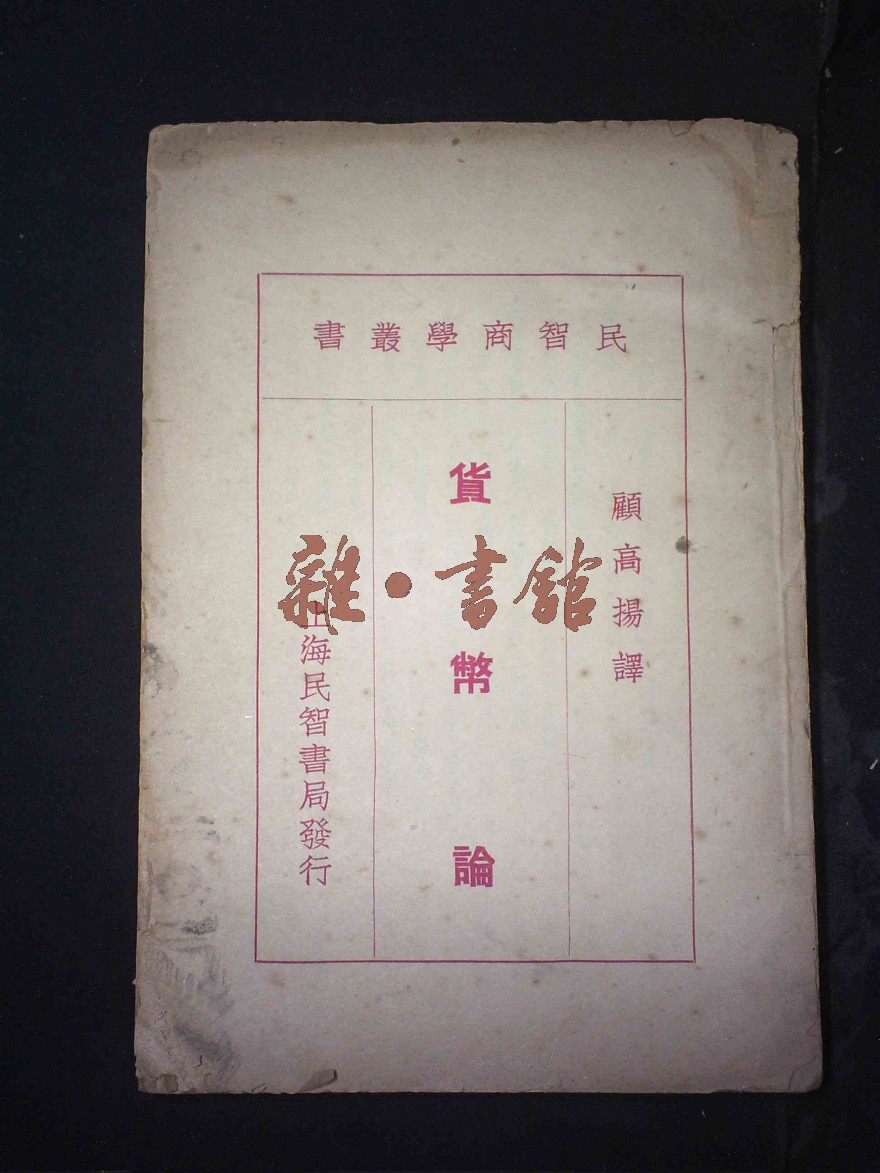 民智商學叢書
顧高揚譯
貨幣論
上海民智書局發行
雜·書館